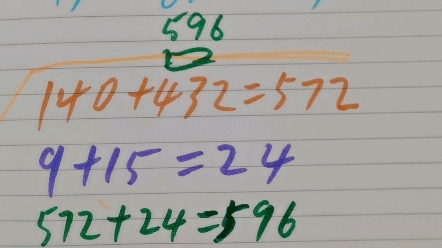 596
140+432=572
9+15=24
572+24=596